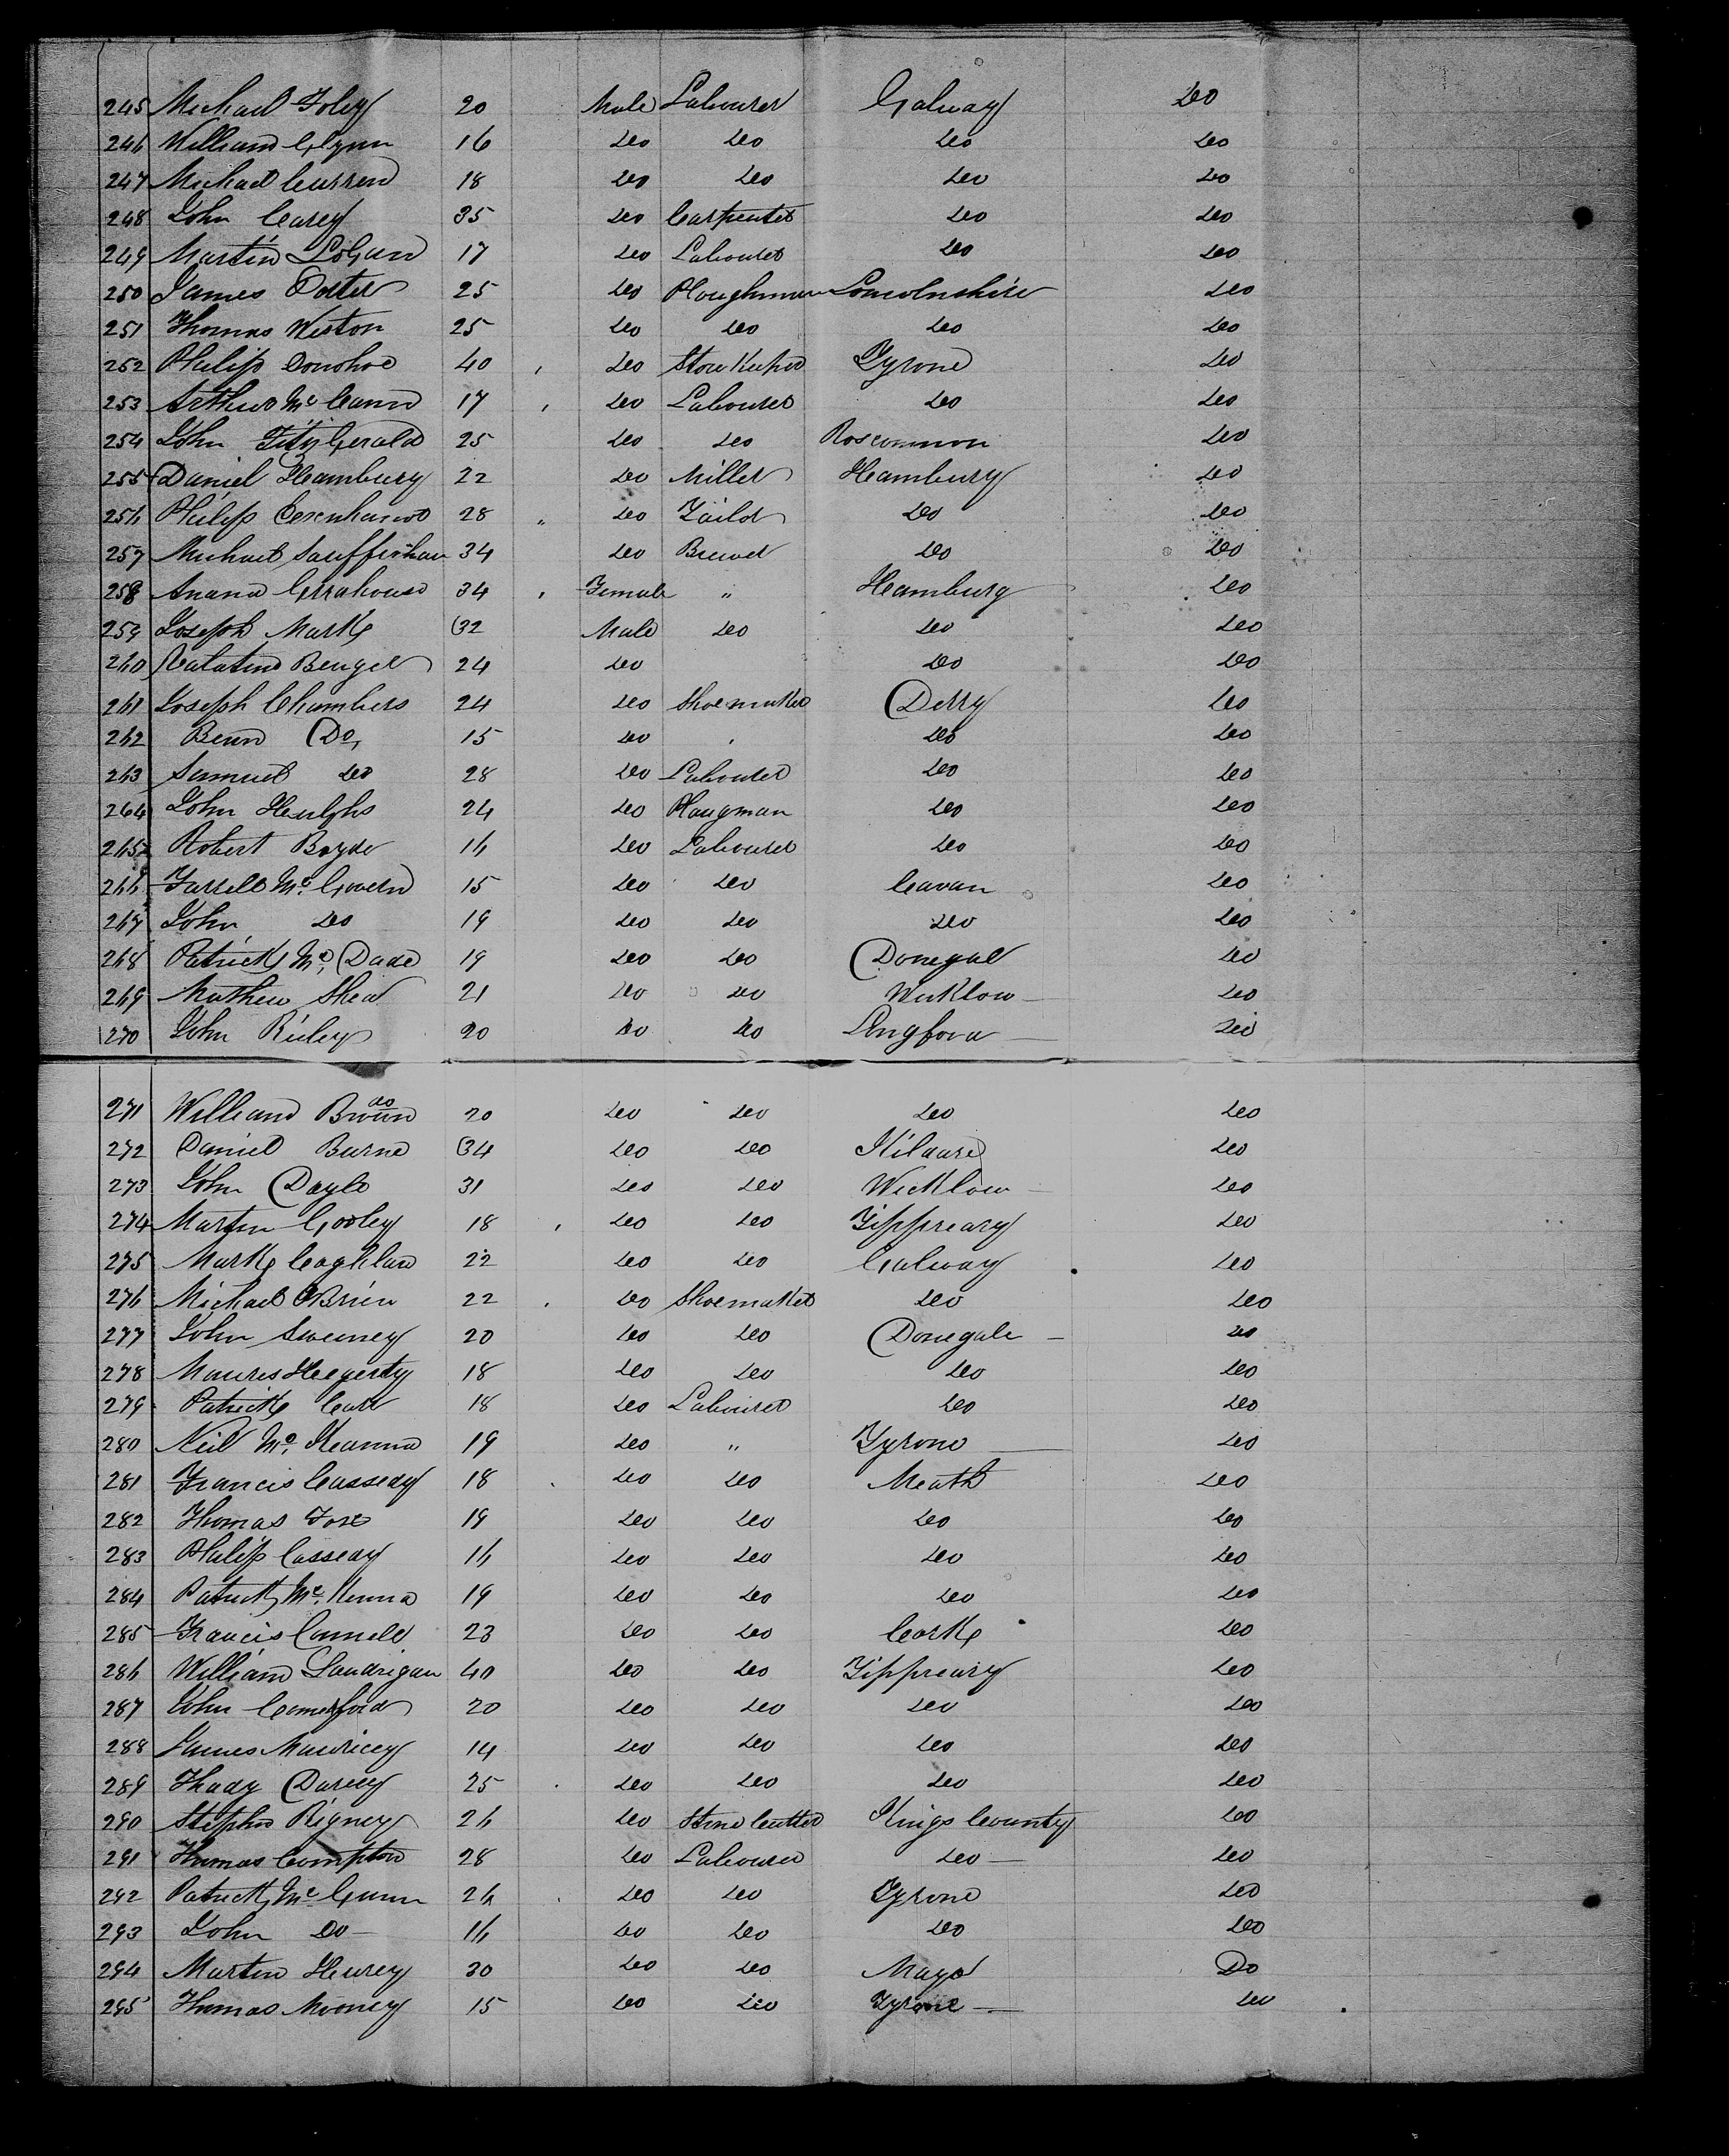 245 Michael Foley 20 Male Labourer Galway Do
246 William Glynn 16 Do Do Do Do
247 Michael Curren 18 Do Do Do Do
248 John Carey 35 Do Carpenter Do Do
249 Martin Logan 17 Do Labourer Do Do
250 James Porter 25 Do Ploughman Lincolnshire Do
251 Thomas Weston 25 Do Do Do Do
252 Philip Donohoe 40 Do Store Keeper Tyrone Do
253 Arthur Mc Cann 17 Do Labourer Do Do
254 John FitzGerald 25 Do Do Roscommon Do
255 Daniel Hambury 22 Do Miller Hambury Do
256 Philip 28 " Do Tailor Do Do
257 Michael 34 Do Brewer Do Do
258 34 Female " Hamburg Do
259 Joseph Mark 32 Male Do Do Do
260 24 Do Do Do
261 Joseph Chambers 24 Do Shoemaker Derry Do
262 Do 15 Do Do Do
263 Samuel Do 28 Do Labourer Do Do
264 John 24 Do Plougman Do Do
265 Robert Boyde 16 Do Labourer Do Do
266 Farrell Mc Govern 15 Do Do Cavan Do
267 John Do 19 Do Do Do Do
268 Patrick Mc Dade 19 Do Do Donegal Do
269 Mathew Shea 21 Do Do Wicklow Do
270 John Rieley 20 Do Do Longford Do
271 William Brown 20 Do Do Do Do
272 Daniel Burne 34 Do Do Kildare Do
273 John Doyle 31 Do Do Wicklow Do
274 Martin Gooley 18 Do Do Tippreary Do
275 Mark Coghlan 22 Do Do Galway Do
276 Michael OBrien 22 Do Shoemaker Do Do
277 John Sweeney 20 Do Do Donegale Do
278 Maures Hegerty 18 Do Do Do Do
279 Patrick Carr 18 Do Labourer Do Do
280 Neil Mc Keanna 19 Do " Tyrone Do
281 Francis Cassedy 18 Do Do Meath Do
282 Thomas Fox 19 Do Do Do Do
283 Philip Cassedy 16 Do Do Do Do
284 Patrick Mc Kenna 19 Do Do Do Do
285 Francis Connell 23 Do Do Cork Do
286 William Landrigan 40 Do Do Tippreary Do
287 John Comerford 20 Do Do Do Do
288 James 14 Do Do Do Do
289 Thady Darcey 25 Do Do Do Do
290 Stephen Rigney 26 Do Stone Cutter Kings County Do
291 Thomas Compton 28 Do Labourer Do Do
292 Patrick Mc Gunn 26 Do Do Tyrone Do
293 John Do 16 Do Do Do Do
294 Martin Henrey 30 Do Do Mayo Do
295 Thomas Mooney 15 Do Do Tyrone Do